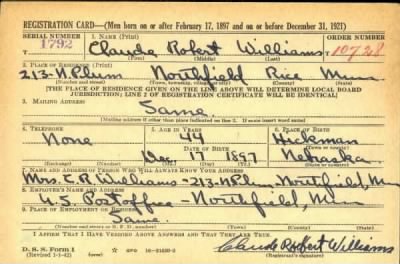 REGISTRATION CARD—(Men born on or after February 17, 1897 and on or before December 31, 1921)
SERIAL NUMBER 1. NAME (Print) ORDER NUMBER
1792 Claude Robert Williams 10728
(First) (Middle) (Last)
2. PLACE OF RESIDENCE (Print)
213-N Plum Northfield Rice Minn
(Number and street) (Town, township, village, or city) (County) (State)
[THE PLACE OF RESIDENCE GIVEN ON THE LINE ABOVE WILL DETERMINE LOCAL BOARD
JURISDICTION; LINE 2 OF REGISTRATION CERTIFICATE WILL BE IDENTICAL]
3. MAILING ADDRESS
Same.
[Mailing address if other than place indicated on line 2. If same insert word same]
4. TELEPHONE 5. AGE IN YEARS 6. PLACE OF BIRTH
None 44 Hickman
DATE OF BIRTH (Town or county)
Dec 17 1897 Nebraska
(Exchange) (Number) (Mo.) (Day) (Yr.) (State or country)
7. NAME AND ADDRESS OF PERSON WHO WILL ALWAYS KNOW YOUR ADDRESS
Mrs. C R Williams - 213-N Plum. Northfield, Minn
8. EMPLOYER'S NAME AND ADDRESS
U.S. Postoffice - Northfield, Minn
9. PLACE OF EMPLOYMENT OR BUSINESS
Same.
(Number and street or R. F. D. number) (Town) (County) (State)
I AFFIRM THAT I HAVE VERIFIED ABOVE ANSWERS AND THAT THEY ARE TRUE.
D. S. S. Form 1
(Revised 1-1-42) GPO Claude Robert Williams
(Registrant's signature)